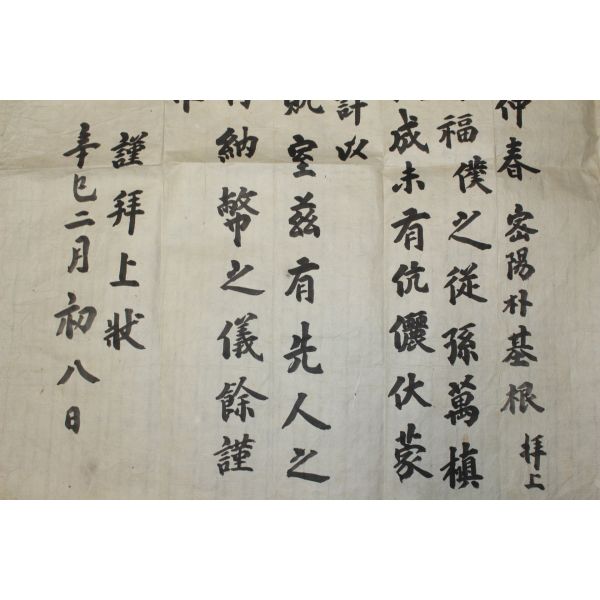 仲春 密陽朴基根 拜上
福僕之從孫萬槙
成未有伉儷伏蒙
許以
室茲有先人之
納幣之儀餘謹
謹拜上狀
辛巳二月初八日